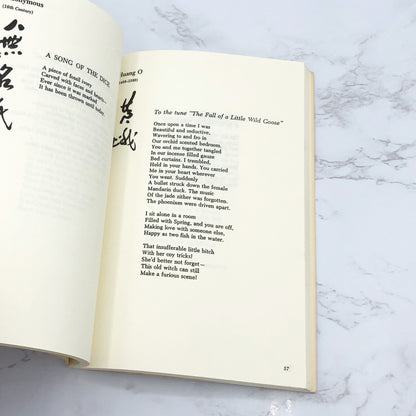 (16th Century)
無名氏
A SONG OF THE DICE
A piece of fossil ivory
Carved with faces and hearts—
Ever since it was marked
It has been thrown until today.
Huang O
黄
峨
To the tune "The Fall of a Little Wild Goose"
Once upon a time I was
Beautiful and seductive,
Wavering to and fro in
Our orchid scented bedroom.
You and me together tangled
In our incense filled gauze
Bed curtains. I trembled,
Held in your hands. You carried
Me in your heart wherever
You went. Suddenly
A bullet struck down the female
Mandarin duck. The music
Of the jade zither was forgotten.
The phoenixes were driven apart.
I sit alone in a room
Filled with Spring, and you are off,
Making love with someone else,
Happy as two fish in the water.
That insufferable little bitch
With her coy tricks!
She'd better not forget—
This old witch can still
Make a furious scene!
57